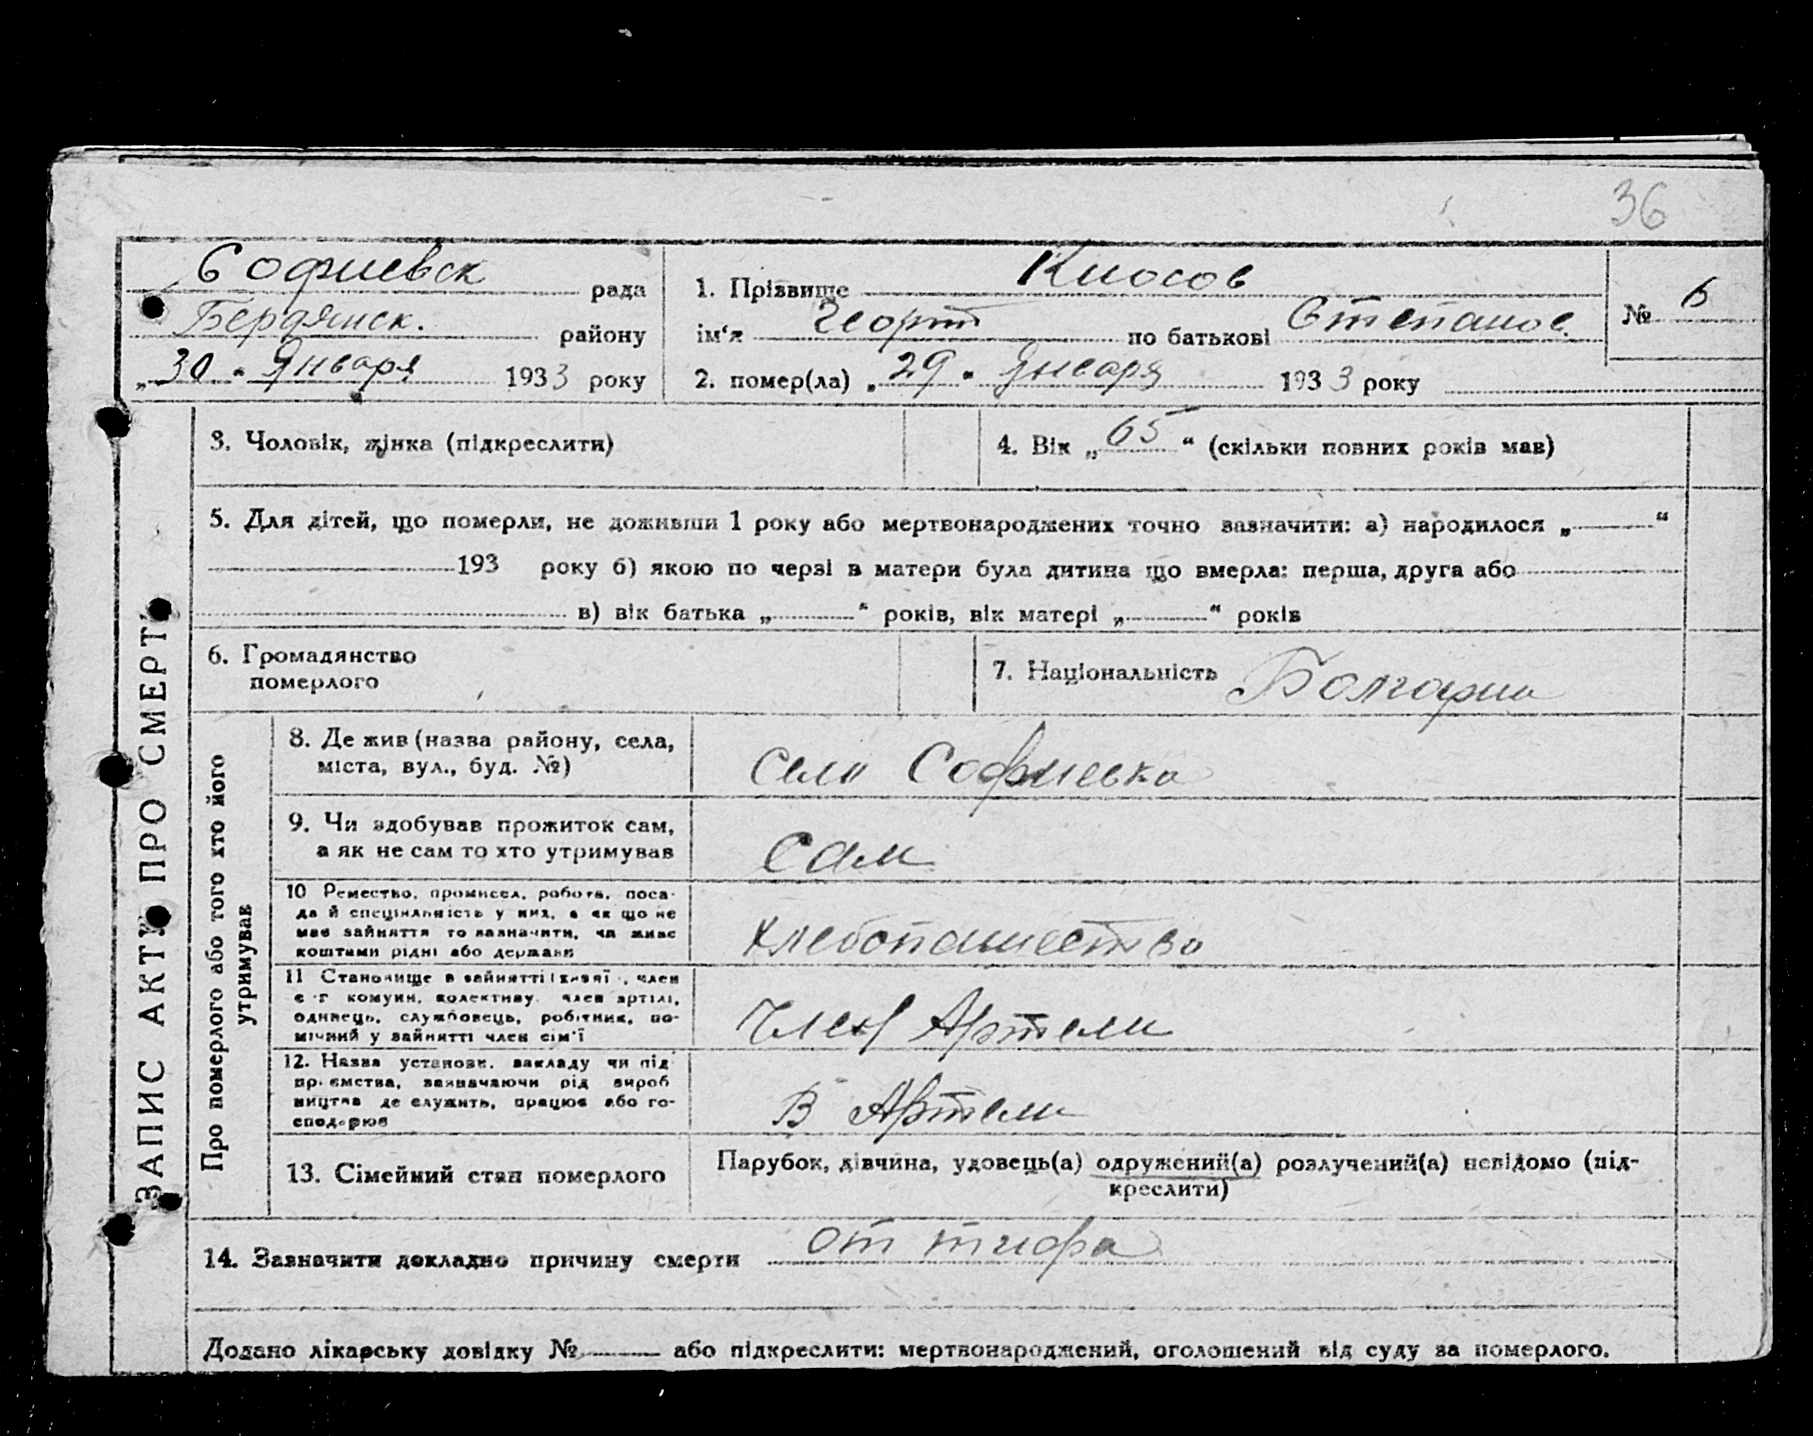 36
Софиевск рада
Бердянск. району
„30" Января 1933 року
1. Прізвище Киосов
ім'я Георг по батькові Степанов.
2. помер(ла) „29" Января 1933 року
№ 6
3. Чоловік, жінка (підкреслити)
4. Вік „65" (скільки повних років мав)
5. Для дітей, що померли, не доживши 1 року або мертвонароджених точно зазначити: а) народилося „ "
193 року б) якою по черзі в матери була дитина що вмерла: перша, друга або
в) вік батька „ " років, вік матері „ " років
6. Громадянство
померлого
7. Національність Болгарин
ЗАПИС АКТУ ПРО СМЕРТЬ
Про померлого або того хто його
утримував
8. Де жив (назва району, села,
міста, вул., буд. №)
Село Софиевка
9. Чи здобував прожиток сам,
а як не сам то хто утримував
Сам
10 Ремество, промисел, робота, поса-
да й спеціальність у них, а як що не
має зайняття то зазначити, чи живе
коштами рідні або держави
Хлебопашество
11 Становище в зайнятті член
комуни, колективу, член артілі,
одинець, службовець, робітник, по-
мічний у зайнятті член сім'ї
Член Артели
12. Назва установи, закладу чи під
приємства, зазначаючи рід вироб
ництва де служить, працює або го-
сподарює
В Артели
13. Сімейний стан померлого
Парубок, дівчина, удовець(а) одружений(а) розлучений(а) невідомо (під-
креслити)
14. Зазначити докладно причину смерти от тифа
Додано лікарську довідку № або підкреслити: мертвонароджений, оголошений від суду за померлого.